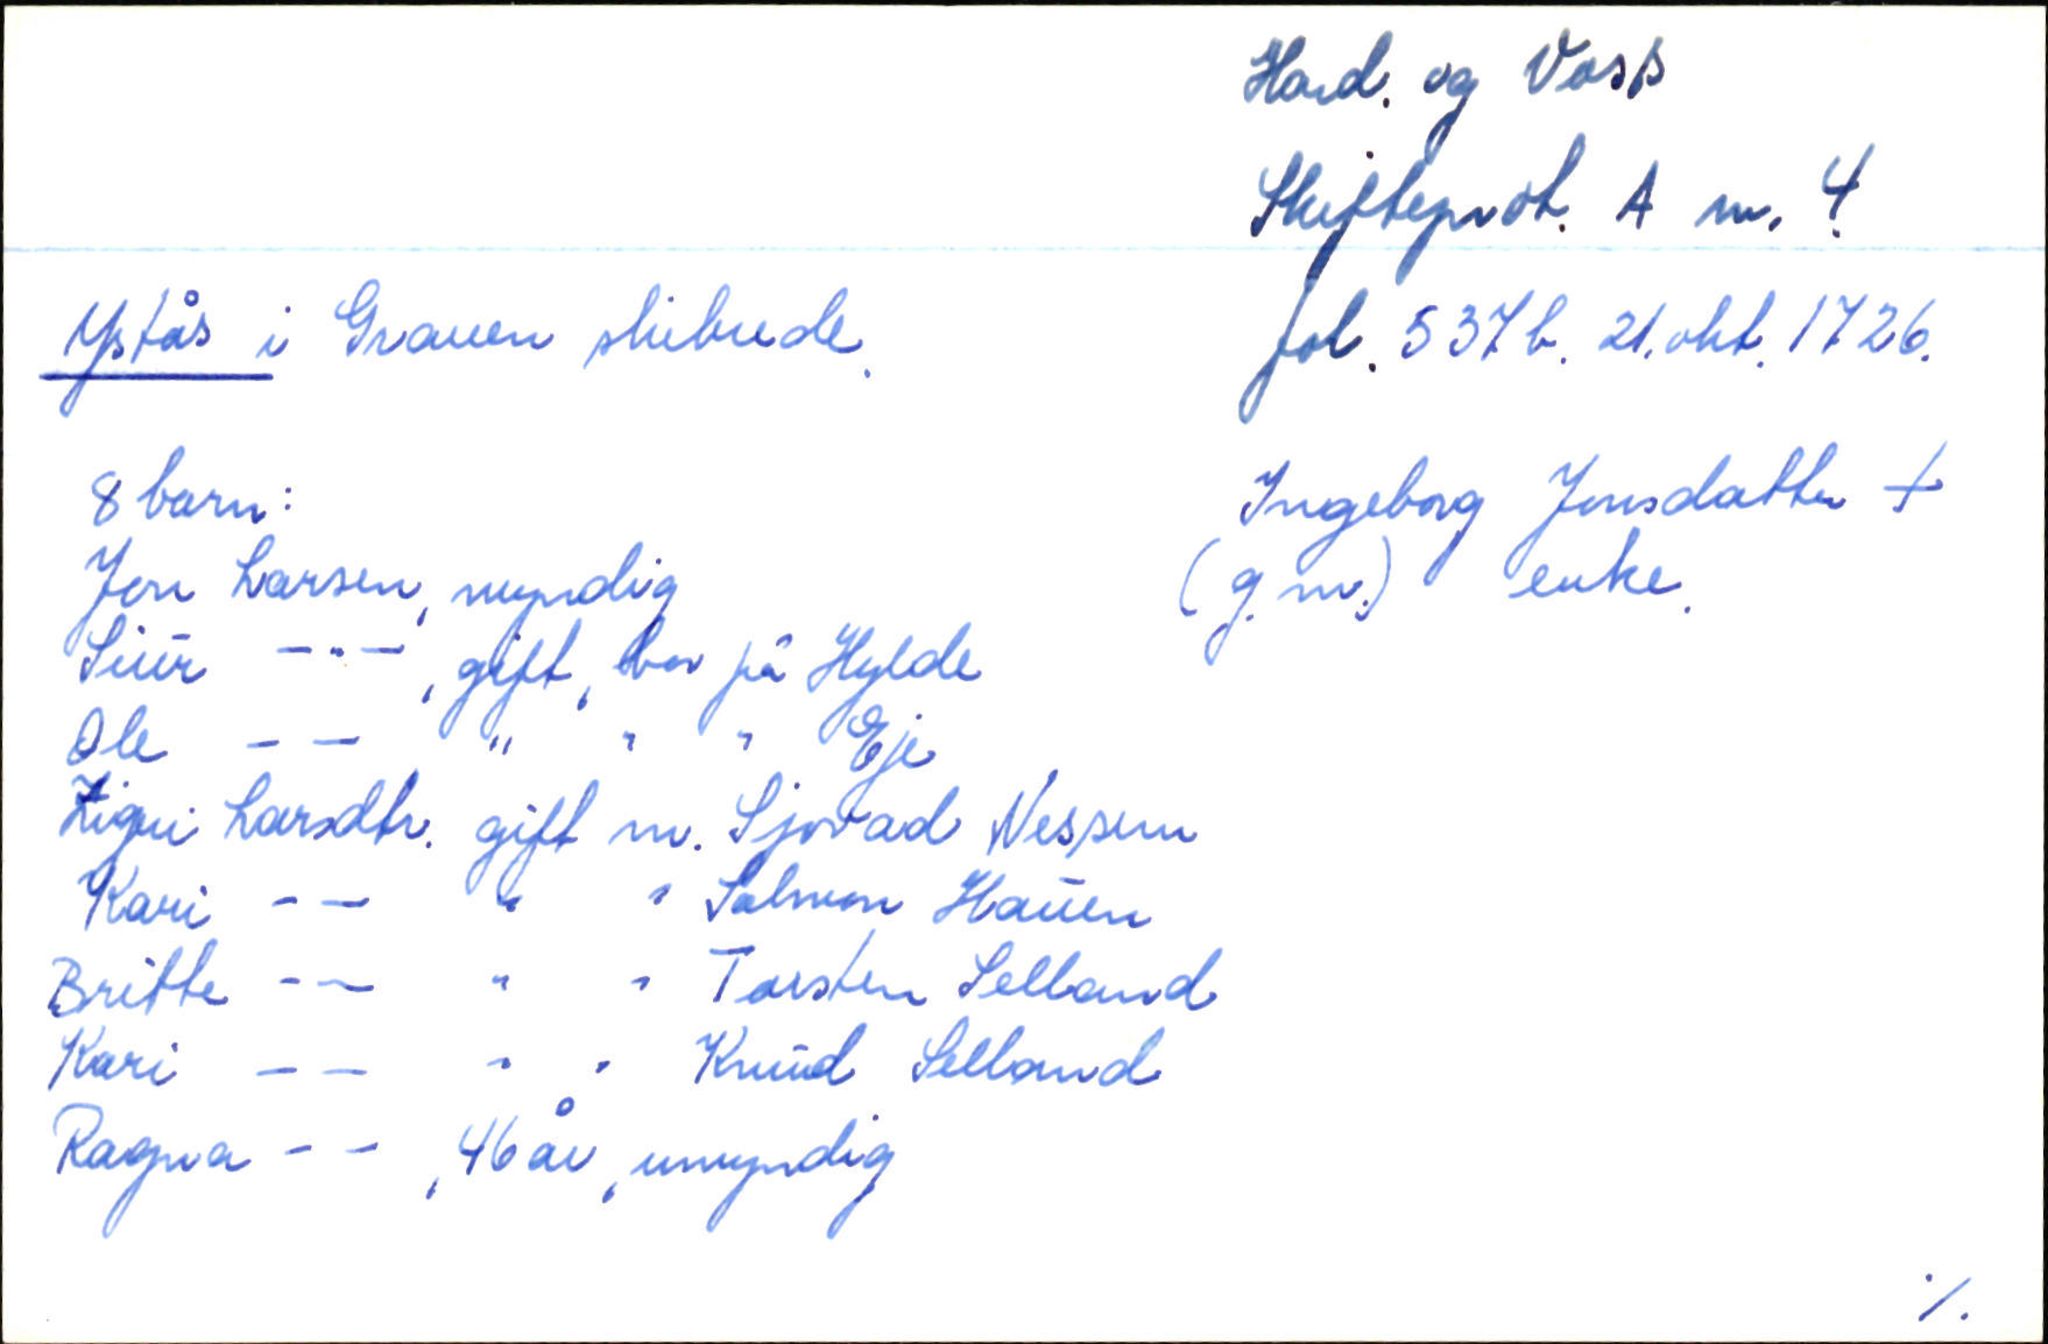 Hard. og Voss
Skifteprot. A nr. 4.
fol. 537b. 21. okt. 1726.
Ystås i Graven skibrede.
Ingeborg Jonsdatter +
(g.m.) enke.
8 barn:
Jon Larsen, myndig
Siur -"-, gift, bor på Hylde
Ole -- " " " Eje
Ligui Larsdtr. gift m. Sjovad Nessem
Kari -- " " Salmon Hauen
Britte -- " " Torsten Selland
Kari -- " " Knud Selland
Ragna --, 46 år, umyndig
./.